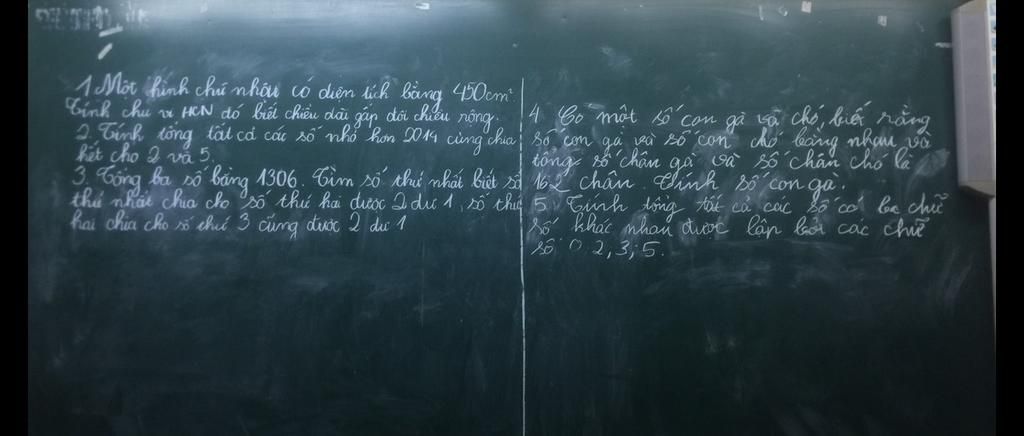 1. Một hình chữ nhật có diện tích bằng 450cm²
Tính chu vi HCN đó biết chiều dài gấp đôi chiều rộng.
2. Tính tổng tất cả các số nhỏ hơn 2014 cùng chia
hết cho 2 và 5.
3. Tổng ba số bằng 1306. Tìm số thứ nhất biết số
thứ nhất chia cho số thứ hai được 2 dư 1, số thứ
hai chia cho số thứ 3 cũng được 2 dư 1
4. Có một số con gà và chó, biết rằng
số con gà và số con chó bằng nhau và
tổng số chân gà và số chân chó là
162 chân. Tính số con gà.
5. Tính tổng tất cả các số có ba chữ
số khác nhau được lập bởi các chữ
số 0, 2, 3, 5.